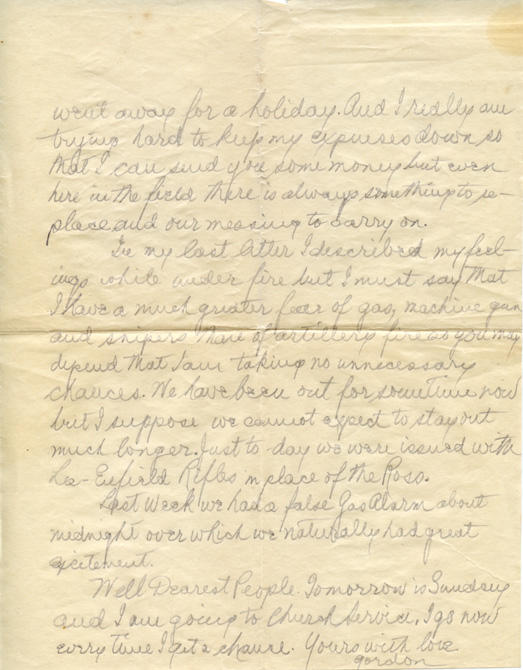 went away for a holiday. And I really am
trying hard to keep my expenses down so
that I can send you some money but even
here in the field there is always something to re-
place and our messing to carry on.
In my last letter I described my feel-
ings while under fire but I must say that
I have a much greater fear of gas, machine gun
and snipers than of artillery fire so you may
depend that I am taking no unnecessary
chances. We have been out for sometime now
but I suppose we cannot expect to stay out
much longer. Just to-day we were issued with
Lee-Enfield Rifles in place of the Ross.
Last Week we had a false Gas Alarm about
midnight over which we naturally had great
excitement.
Well Dearest People. Tomorrow is Sunday
and I am going to Church Service, I go now
every time I get a chance. Yours with love
Gordon